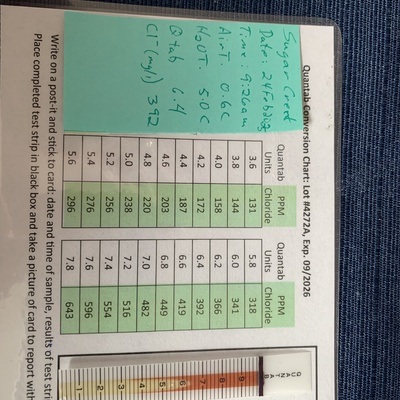 Quantab Conversion Chart: Lot #4272A, Exp. 09/2026
Sugar Creek
Time: 9:26am
AirT. 0.6C
H2OT. 5.0C
Qtab 6.4
Cl-(mg/L) 392
Quantab Units PPM Chloride
3.6 131
3.8 144
4.0 158
4.2 172
4.4 187
4.6 203
4.8 220
5.0 238
5.2 256
5.4 276
5.6 296
Quantab Units PPM Chloride
5.8 318
6.0 341
6.2 366
6.4 392
6.6 419
6.8 449
7.0 482
7.2 516
7.4 554
7.6 596
7.8 643
QUANTAB
9
8
7
6
5
4
3
2
1
Write on a post-it and stick to card: date and time of sample, results of test
Place completed test strip in black box and take a picture of card to report